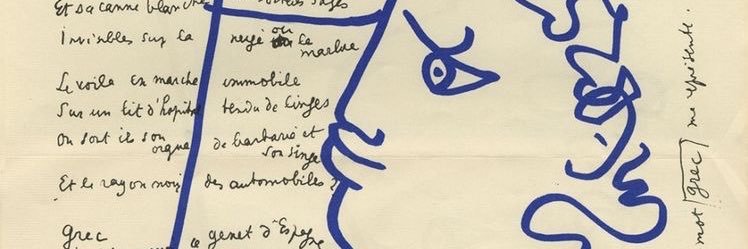 Et sa canne blanche
Invisibles sur la neige ou le marbre
Le voila en marche immobile
Sur un lit d'hopital tendu de linges
Ou sont ils son orgue de barbarie et son singe
Et le rayon noir des automobiles ?
grec
genet d'Espagne
mot grec me représente.